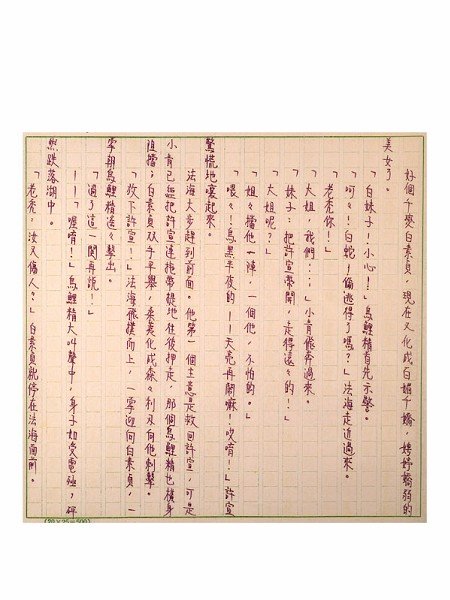 好個千變白素貞,現在又化成白媚千嬌,娉婷嬌弱的
美女了。
「白妹子!小心!」烏鯉精首先示警。
「呵々!白蛇!偷逃得了嗎?」法海走近過來。
「老禿你!」
「大姐,我們…」小青飛奔過來。
「妹子:把許宣帶開,走得遠々的!」
「大姐呢?」
「姐々擋他一陣,一個他,不怕的。」
「喂々!烏黑半夜的——天亮再鬧嘛!哎唷!」許宣
驚慌地嚷起來。
法海大步趕到前面。他第一個主意是救回許宣,可是
小青已經把許宣連拖帶提地往後押走,那個烏鯉精也橫身
阻擋;白素貞双手早舉,柔荑化成森々利刃向他刺擊。
「放下許宣!」法海飛撲向上,一掌迎向白素貞,一
掌朝烏鯉精送々擊出。
「過了這一関再說!」
——「喔唷!」烏鯉精大叫聲中,身子如受電殛,砰
然跌落湖中。
「老禿,汝又傷人?」白素貞就停在法海面前。
(20×25=500)